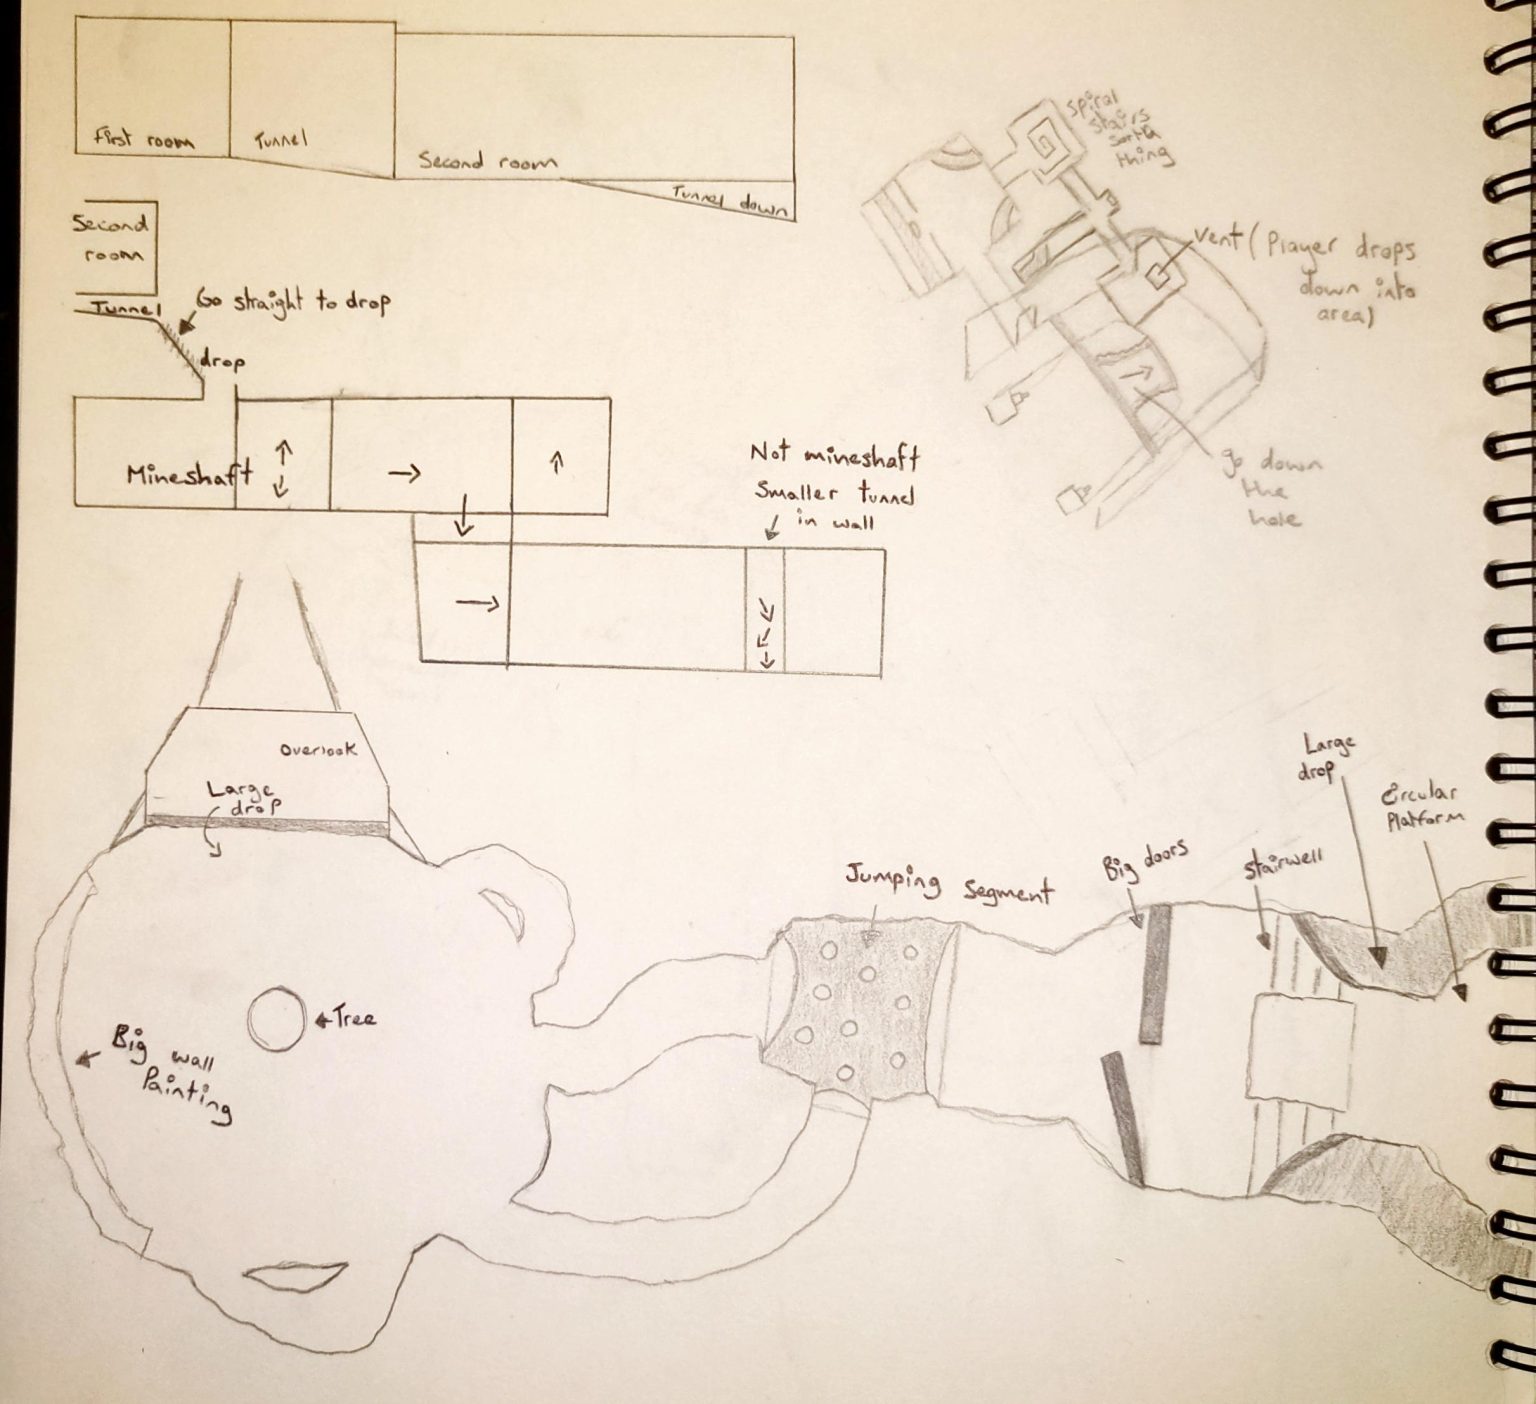 First room
Tunnel
Second room
Tunnel down
Second
room
Tunnel
Go straight to drop
drop
Mineshaft
Not mineshaft
Smaller tunnel
in wall
Spiral
stairs
sorta
thing
vent (Player drops
down into
area)
go down
the
hole
Overlook
Large
drop
Tree
Big wall
Painting
Jumping segment
Big doors
Stairwell
Large
drop
Circular
Platform